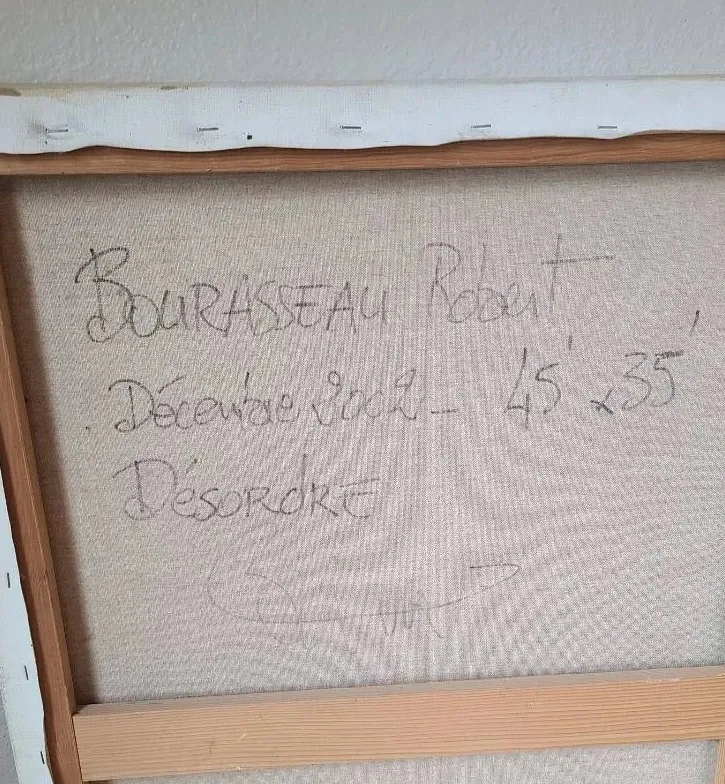 BOURASSEAU Robert
Décembre 2002 - 45' x 35'
DÉSORDRE